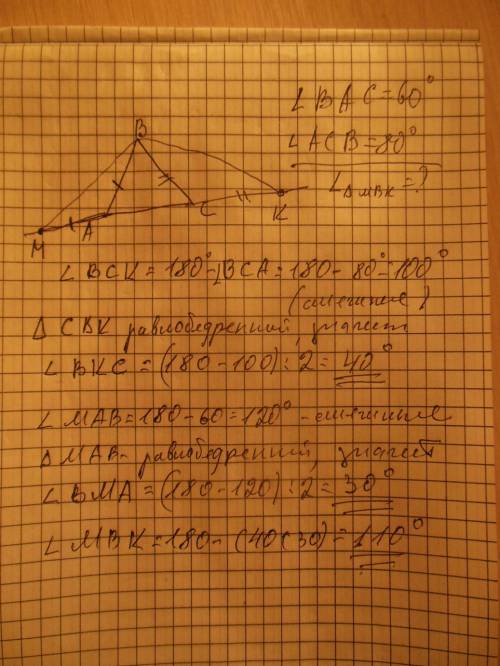 ∠BAC=60°
∠ACB=80°
∠ΔMBK=?
B
M A C K
∠BCK=180°-∠BCA=180-80°=100°
(смежные)
ΔCBK равнобедренный, значит
∠BKC=(180-100):2=40°
∠MAB=180-60=120°-смежные
ΔMAB-равнобедренный, значит
∠BMA=(180-120):2=30°
∠MBK=180-(40+30)=110°